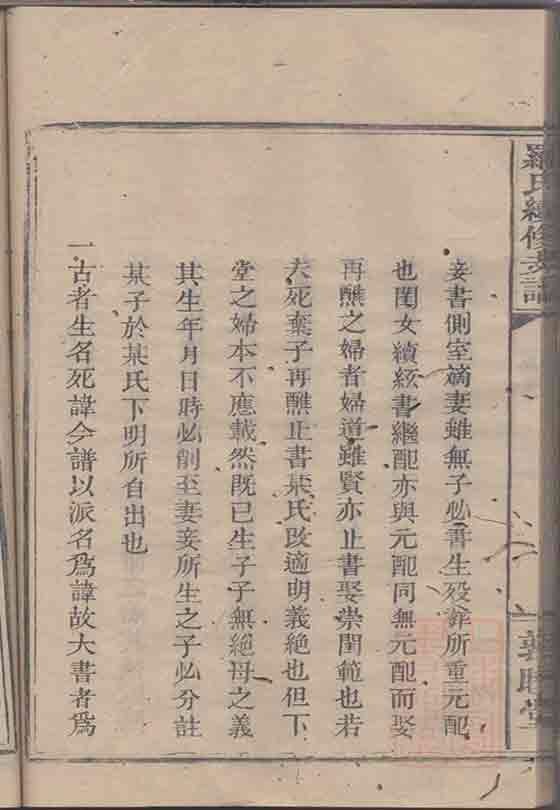 羅氏續修支譜
妾書側室嫡妻雖無子必書生歿葬所重元配
也閨女續絃書繼配亦與元配同無元配而娶
再醮之婦者婦道雖賢亦止書娶崇閨範也若
夫死棄子再醮止書某氏改適明義絶也但下
堂之婦本不應載然既已生子子無絶母之義
其生年月日時必削至妻妾所生之子必分註
某子於某氏下明所自出也
一古者生名死諱今譜以派名爲諱故大書者爲